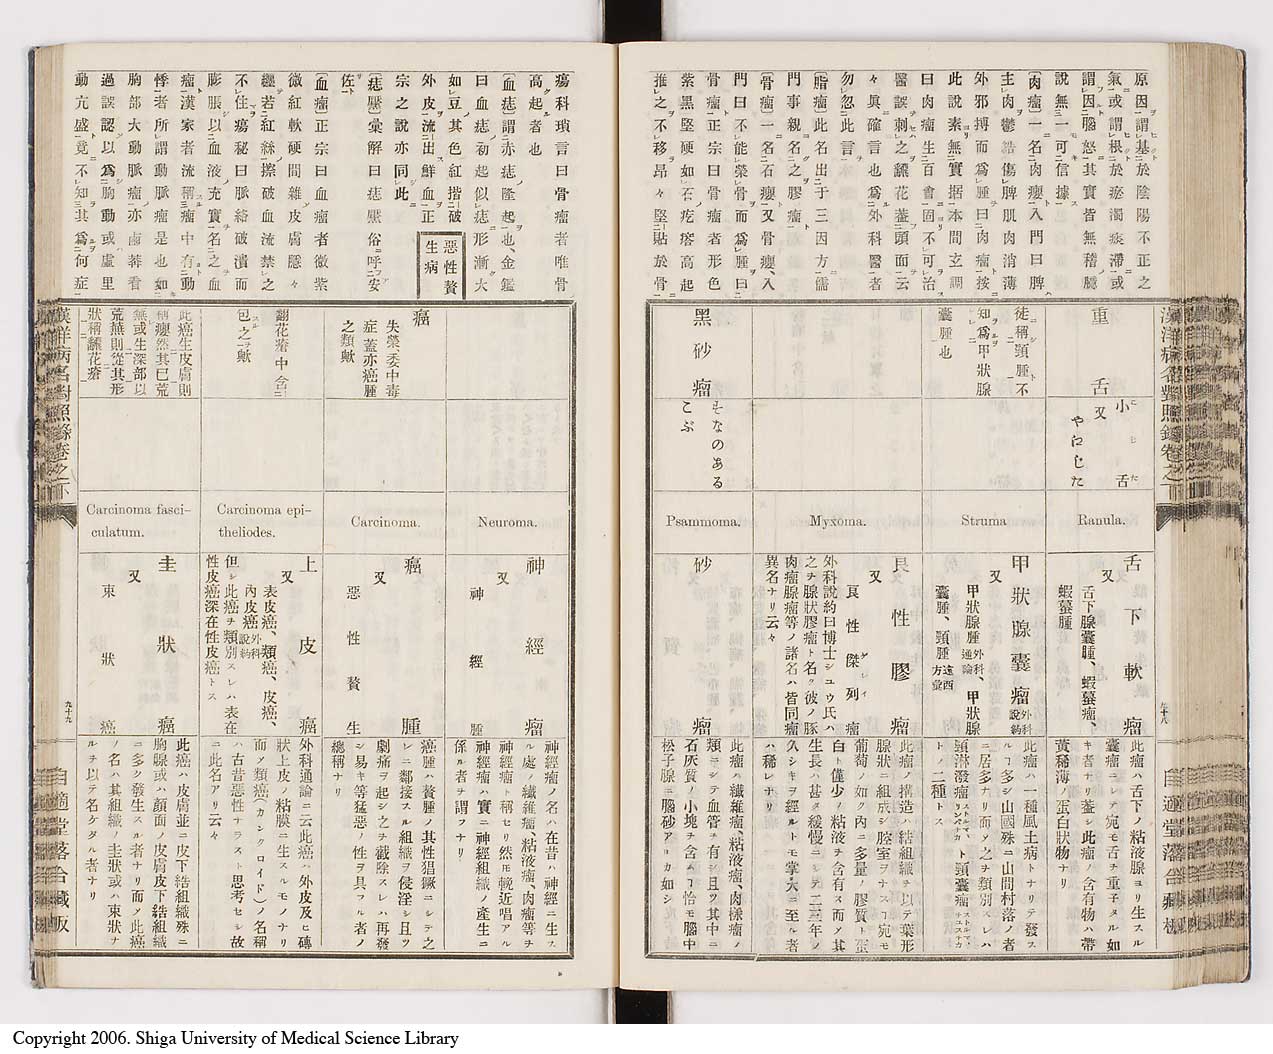 原因謂基於陰陽不正之
氣或謂根於瘀濁痰滯或
謂因腦怒其實皆無稽臆
說無一可信據
〔肉瘤〕一名肉癭入門曰脾
主肉鬱結傷脾肌肉消薄
外邪搏而爲腫曰肉瘤按
此說素無實據本間玄調
曰肉瘤生百會固不可治
醫誤刺之飜花蓋頭而云
々眞確言也爲外科醫者
勿忽此言
〔脂瘤〕此名出于三因方儒
門事親名之膠瘤
〔骨瘤〕一名石癭又骨癭入
門曰不能榮骨而爲腫曰
骨瘤正宗曰骨瘤者形色
紫黑堅硬如石疙瘩高起
推之不移昂々堅貼於骨
重舌
小舌
又
やにした
Ranula.
舌下軟瘤
又
舌下腺囊腫、蝦蟇瘤、
蝦蟇腫
此瘤ハ舌下ノ粘液腺ヨリ生スル
囊瘤ニテ宛モ舌チ重子タル如
キ者ナリ蓋シ此瘤ノ含有物ハ帶
黃稀薄ノ蛋白狀物ナリ
徒稱頸腫不
知爲甲狀腺
囊腫也
Struma
甲狀腺囊瘤
外科說約
又
甲狀腺腫
外科通論
、甲狀腺
囊腫、頸腫
遠西方彙
此瘤ハ一種風土病トナリテ發ス
ルコ多シ山國殊ニ山間村落ノ者
ニ居多ナリ而ノ之チ類別スレハ
頸淋潑瘤
ト頸囊瘤
トノ二種トス
Myxoma.
良性膠瘤
又
良性傑列瘤
外科說約曰博士シュウ氏ハ
之チ腺狀膠瘤ト名ク彼ノ豚
肉瘤腺瘤等ノ諸名ハ皆同瘤
異名ナリ云々
此瘤ノ構造ハ結組織チ以テ葉形
腺狀ニ組成シ腔室チナスコ宛モ
葡萄ノ如ク內ニ多量ノ膠質ト蛋
白ト僅少ノ粘液チ含有ス而メ其
生長ハ甚タ緩慢ニシテ二三年ノ
久シキヲ經ルトモ掌大ニ至ル者
ハ稀レナリ
黑砂瘤
そなのある
こぶ
Psammoma.
砂瘤
此瘤ハ纖維瘤、粘液瘤、肉樣瘤ノ
類ニシテ血管チ有シ且ツ其中ニ
石灰質ノ小塊チ含ムコ恰モ腦中
松子腺ニ腦砂アリカ如シ
漢洋病名對照錄卷之下
自適堂落合藏板
瘍科瑣言曰骨瘤者唯骨
高起者也
〔血痣〕謂ニ赤痣隆起也、金鑑
曰血痣初起似痣形漸大
如豆其色紅揩破
外皮流出鮮血正
宗之說亦同此
〔痣黶〕彙解曰痣黶俗呼安
佐
〔血瘤〕正宗曰血瘤者微紫
微紅軟硬間雜皮膚隱々
纏若紅絲擦破血流禁之
不住瘍秘曰脈絡破潰而
膨脹以血液充實名之血
瘤漢家者流稱瘤中有動
悸者所謂動脈瘤是也如
胸部大動脈瘤亦鹵莽看
過誤認以爲胸動或虛里
動亢盛竟不知其爲何症
惡性贅
生病
Neuroma.
神經瘤
又
神經腫
神經瘤ノ名ハ在昔ハ神經ニ生ス
ル處ノ纖維瘤、粘液瘤、肉瘤等チ
神經瘤ト稱セリ然モ輓近唱アル
神經瘤ハ實ニ神經組織ノ產生ニ
係ル者チ謂フナリ
癌
失榮委中毒
症蓋亦癌腫
之類歟
Carcinoma.
癌腫
又
惡性贅生
癌腫ハ贅腫ノ其性猖獗ニシテ之
レニ鄰接スル組織ヲ侵淫シ且ツ
劇痛ヲ起シ之チ截除スレハ再發
シ易キ等猛惡ノ性ヲ具フル者ノ
總稱ナリ
翻花瘡中含
包之歟
Carcinoma epi-
theliodes.
上皮癌
又
表皮癌、類癌、皮癌、
內皮癌
外科說約
但シ此癌チ類別スレハ表在
性皮癌深在性皮癌トス
外科通論ニ云此癌ハ外皮及ヒ磚
狀上皮ノ粘膜ニ生スルモノナリ
而ノ類癌(カンクロイド)ノ名稱
ハ古昔惡性ナラスト思考セシ故
ニ此名アリ云々
此癌生皮膚則
稱癭然其已荒
無或生深部以
荒蕪則從其形
狀稱飜花瘡
Carcinoma fasci-
culatum.
圭狀癌
又
束狀癌
此癌ハ皮膚並ニ皮下結組織殊ニ
胸腺或ハ顏面ノ皮膚皮下結組織
ニ多ク發生スル者ナリ而メ此癌
ノ名ハ其組織ノ圭狀或ハ束狀ナ
ルチ以テ名ケタル者ナリ
漢洋病名對照錄卷之下
九十九
自適堂落合藏板
Copyright 2006. Shiga University of Medical Science Library